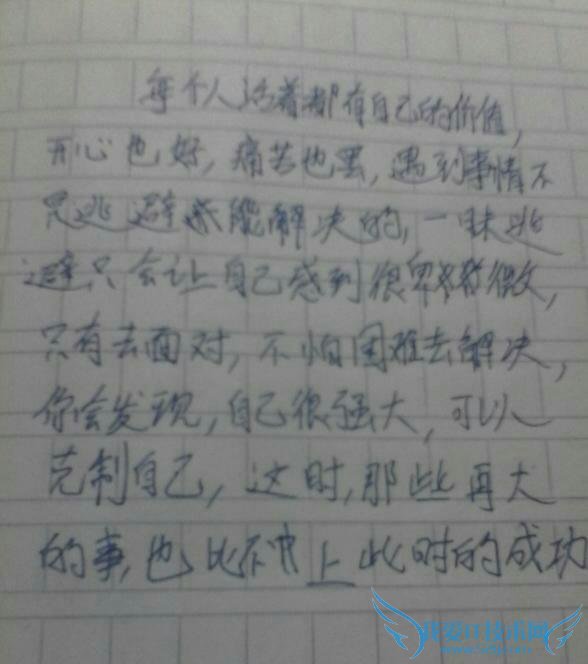 每个人活着都有自己的价值,
开心也好,痛苦也罢,遇到事情不
是逃避就能解决的,一味逃
避只会让自己感到很卑微,
只有去面对,不怕困难去解决,
你会发现,自己很强大,可以
克制自己,这时,那些再大
的事,也比不上此时的成功
我爱IT技术网